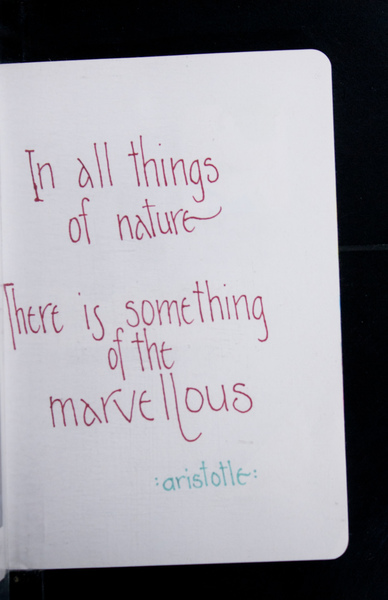 In all things
of nature
There is something
of the
marvellous
:aristotle: